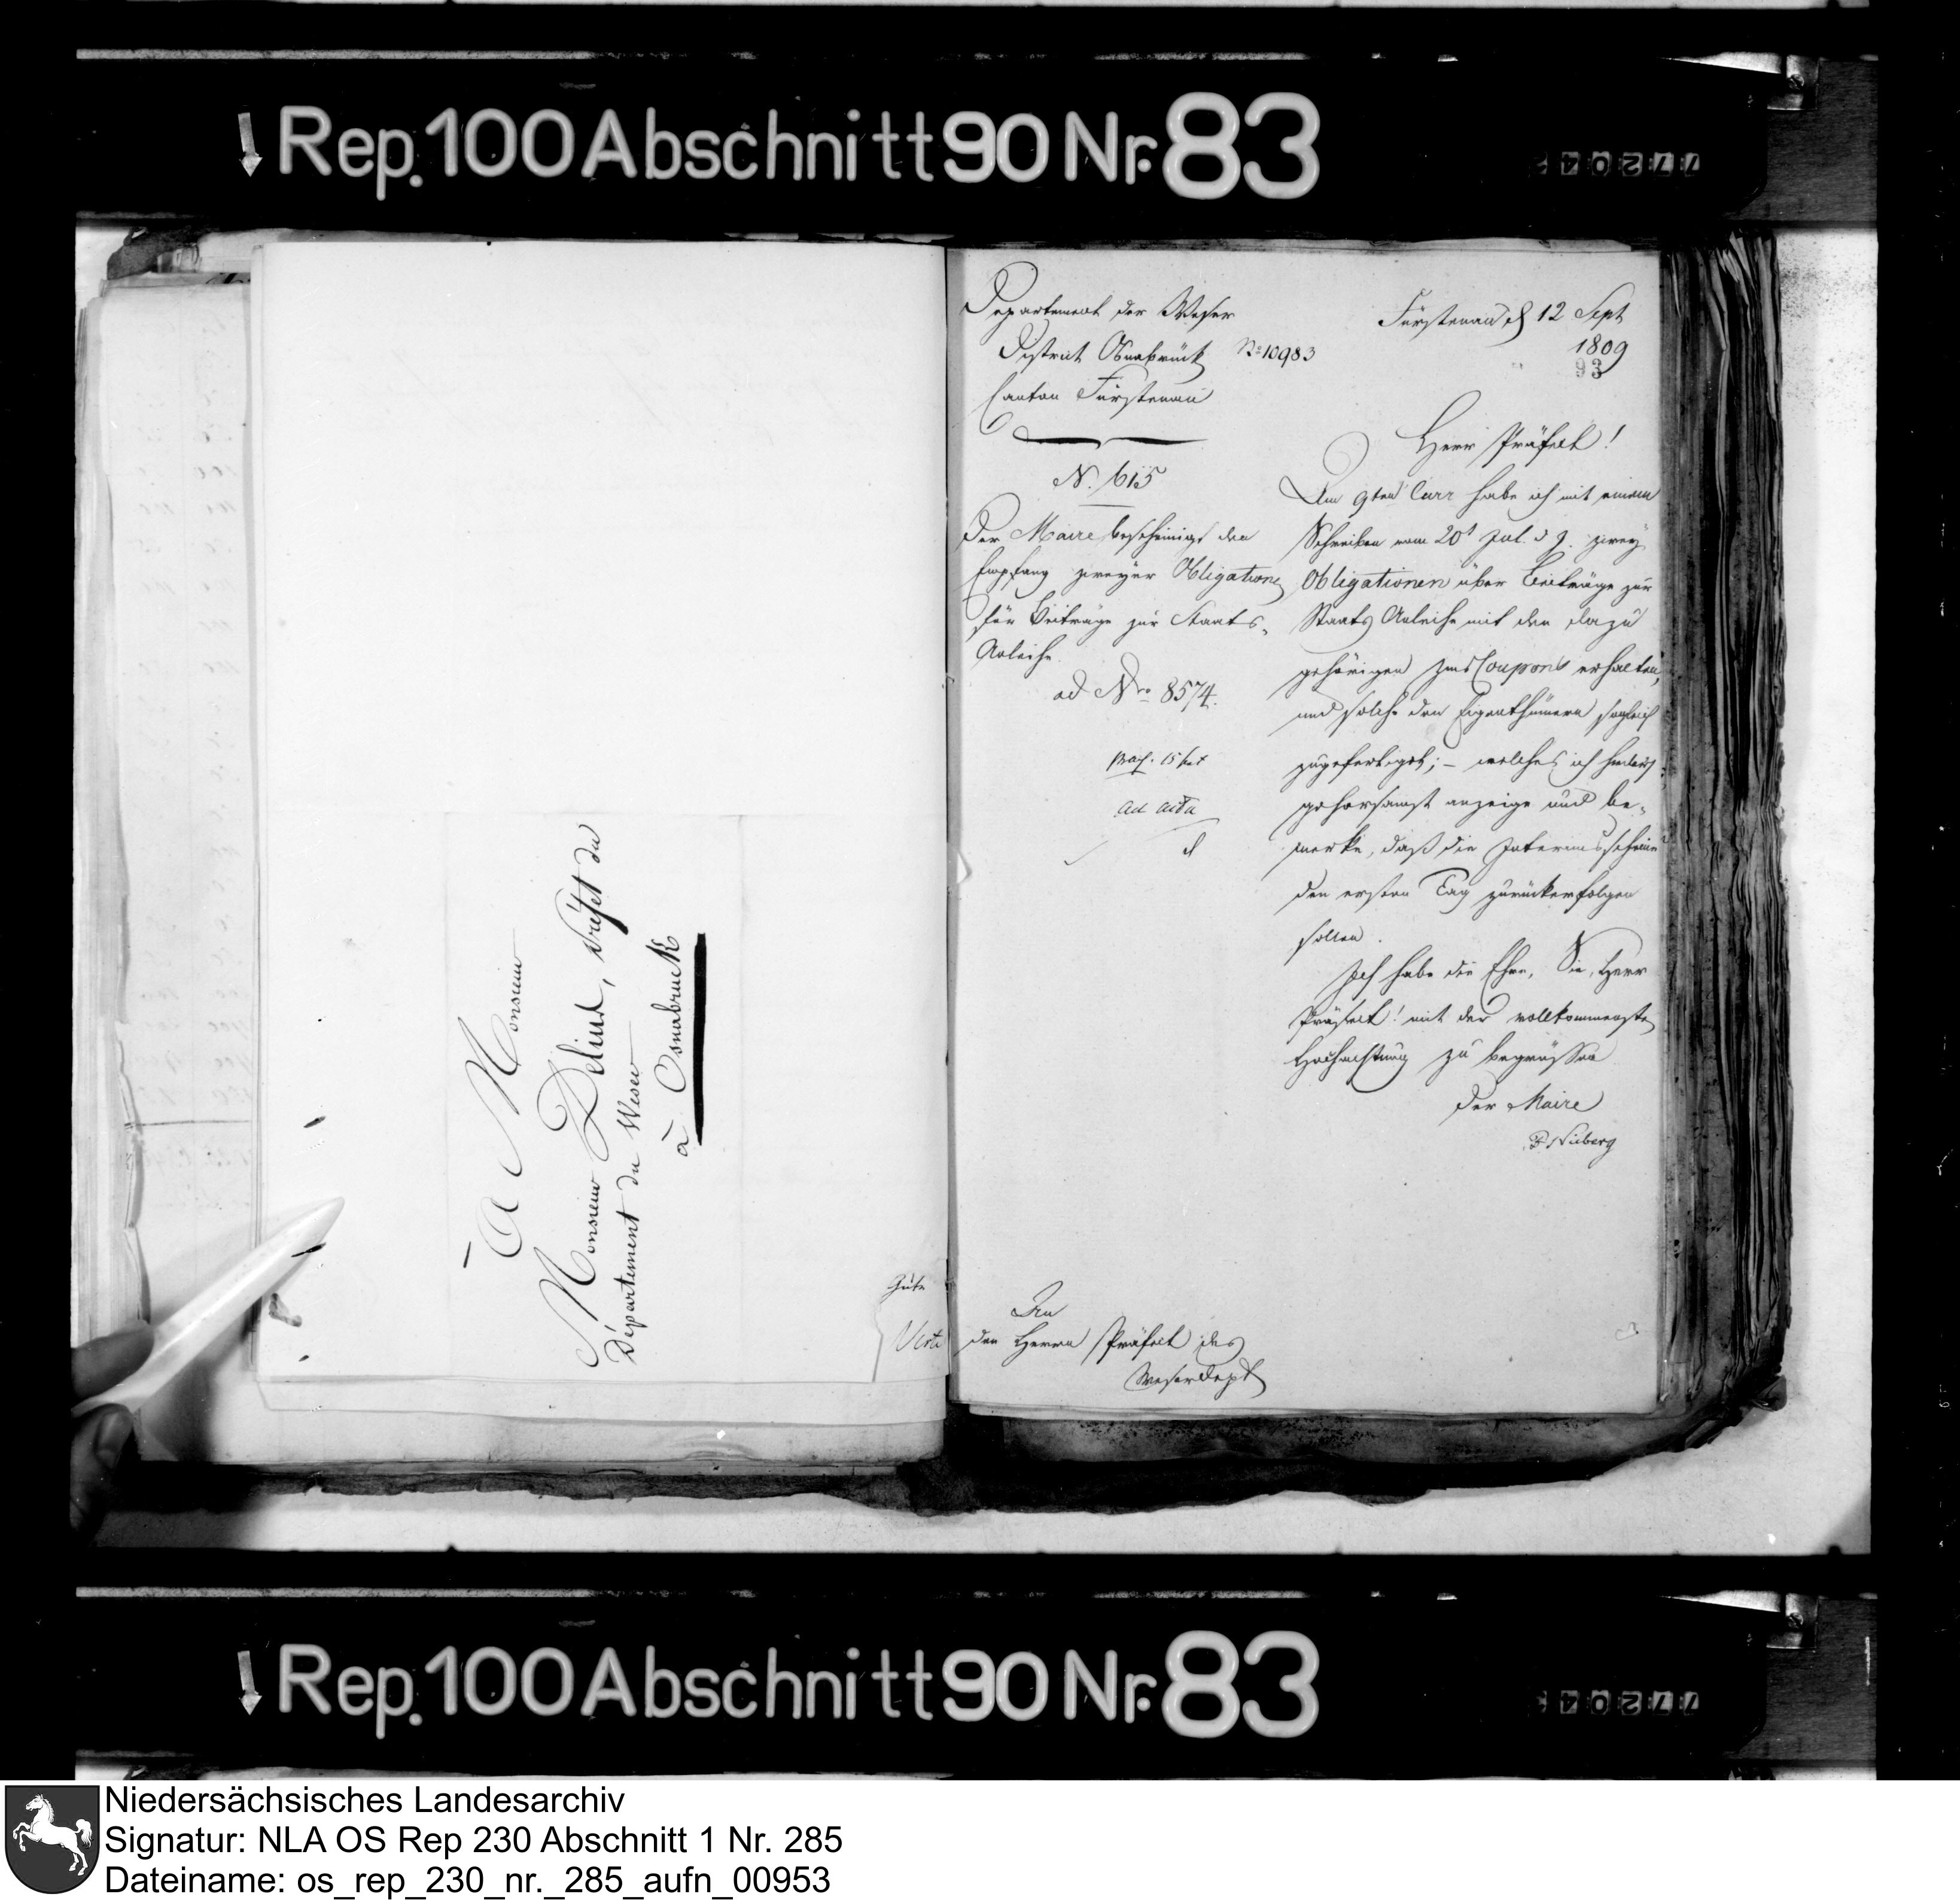 Rep. 100 Abschnitt 90 Nr. 83
77204
à Monsieur
Monsieur Delius, Préfet du
Département du Weser
à Osnabruck
Gute
Department der Weser
District Osnabrück No 10983
Canton Fürstenau
N. 615
Der Maire bescheinigt den
Empfang zweyer Obligationen
für Beiträge zur Staats-
Anleihe.
ad Nro 8574.
15
ad acta
An
den Herrn Präfect des
Weserdept
Fürstenau d 12 Sept
1809
93
Herr Präfect!
Am 9ten Curr habe ich mit einem
Schreiben vom 20t Jul. d. J. zwey
Obligationen über Beiträge zur
Staats Anleihe mit den dazu
gehörigen Zins Coupons erhalten,
und solche den Eigenthümern sogleich
zugefertigt; – welches ich
gehorsamst anzeige und be-
merke, daß die Interimsscheine
den ersten Tag zurückerfolgen
sollen.
Ich habe die Ehre, Sie, Herr
Präfect! mit der vollkommensten
Hochachtung zu begrüssen
Der Maire
Nieberg
Rep. 100 Abschnitt 90 Nr. 83
77204
Niedersächsisches Landesarchiv
Signatur: NLA OS Rep 230 Abschnitt 1 Nr. 285
Dateiname: os_rep_230_nr._285_aufn_00953